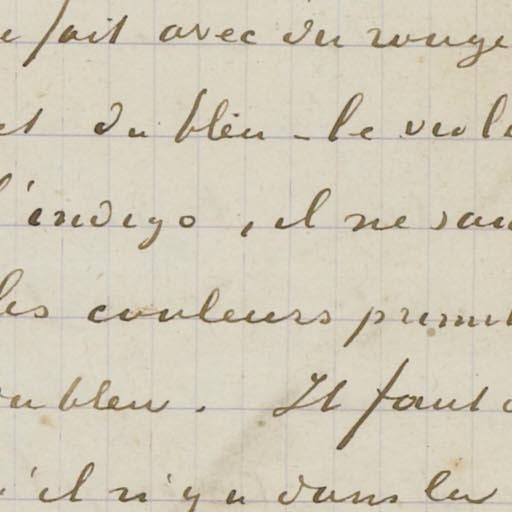 fait avec du rouge
et du bleu - le viol
l'indigo, il ne sau
les couleurs primit
du bleu. Il faut
'il n'y a dans la